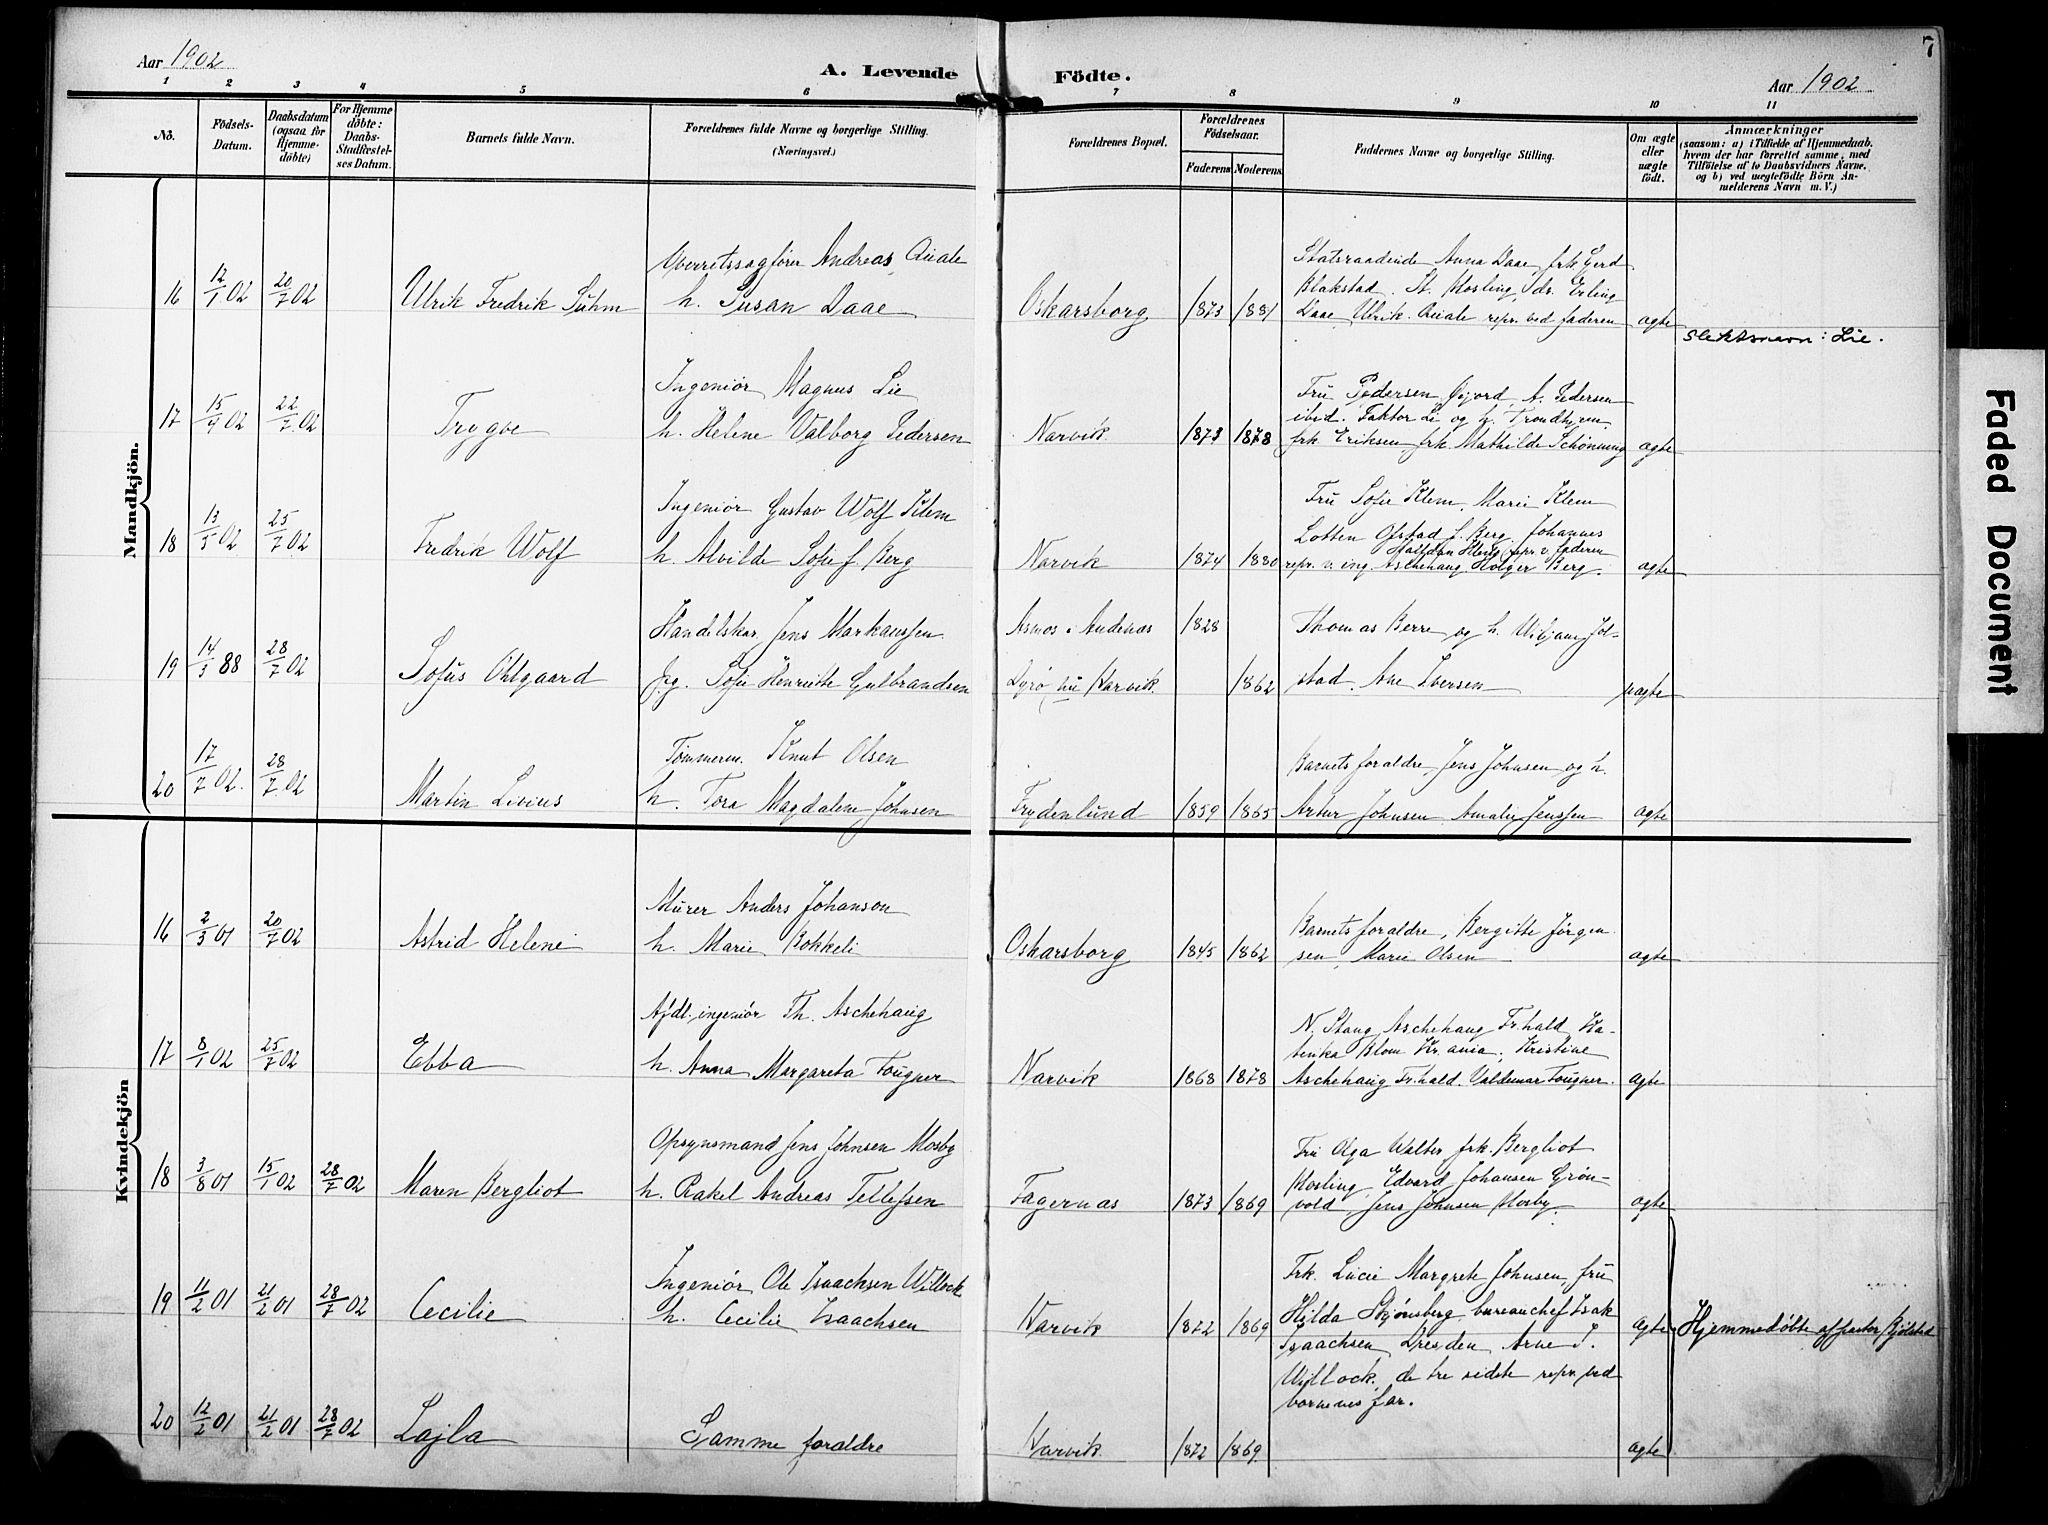 7
Aar 1902
A. Levende Födte.
Aar 1902
1 2 3 4 5 6 7 8 9 10 11
No.
Födsels-
Datum.
Daabsdatum
(ogsaa for
Hjemme-
döbte)
For Hjemme
döbte:
Daabs-
Stadfæstel-
ses Datum.
Barnets fulde Navn.
Forældrenes fulde Navne og borgerlige Stilling.
(Næringsvei.)
Forældrenes Bopæl.
Forældrenes
Födselsaar.
Faderens Moderens
Faddernes Navne og borgerlige Stilling.
Om ægte
eller
uægte
födt.
Anmærkninger
(saasom: a) i Tilfælde af Hjemmedaab.
hvem der har forrettet samme, med
Tilföielse af to Daabsvidners Navne.
og b) ved uægtefödte Börn An-
melderens Navn m. V.)
Mandkjön.
16 12/1 02 20/7 02 Ulrik Fredrik Suhm
Overretssagfører Andreas Quale
h. Susan Daae
Oskarsborg 1873 1881
Statsraadinde Anna Daae, frk Gerd
Blakstad. St. Kosling, dr. Erling
Daae, Ulrik Quale repr. ved faderen
ægte
Slektsnavn: Lie.
17 15/4 02 22/7 02 Trygve
Ingeniör Magnus Lie
h. Helene Valborg Pedersen
Narvik 1873 1878
Fru Pedersen Gjord, A. Pedersen
ibid. Faktor Li og h. Trondhjem
frk Eriksen, frk. Mathilde Schønning
ægte
18 13/5 02 25/7 02 Fredrik Wolf
Ingeniör Gustav Wolf Klem
h. Alvilde Sofie f. Berg
Narvik 1874 1880
Fru Sofie Klem, Marie Klem
Lotten Ofstad f. Berg. Johannes
Halfdan Klem repr. v. faderen
repr. v. ing. Aschehaug Holger Berg.
ægte
19 14/5 88 28/7 02 Sofus Ohlgaard
Handelskar Jens Markussen
Pig. Sofie Henriette Gulbrandsen
Asmos i Andenæs 1828
nu Narvik 1862
Thomas Berre og h. Jol-
stad. Ane Iversen
uægte
20 17/7 02 28/7 02 Martin Livius
Tømmerm. Knut Olsen
h. Tora Magdalene Johnsen
Frydenlund 1859 1865
Barnets forældre, Jens Johnsen og h.
Artur Johnsen, Amalie Jenssen
ægte
Kvindekjön
16 2/3 01 20/7 02 Astrid Helene
Murer Anders Johanson
h. Marie Bokkeli
Oskarsborg 1845 1862
Barnets forældre, Bergitte Jørgen
sen, Marie Olsen
ægte
17 8/1 02 25/7 02 Ebba
Afdl. ingeniör Th. Aschehaug
h. Anna Margareta Fougner
Narvik 1868 1878
N. Stang Aschehaug Fr.hald, Ka-
tinka Blom Kr.ania, Kristine
Aschehaug Fr.hald. Valdemar Fougner.
ægte
18 3/8 01 15/1 02 28/7 02 Maren Bergliot
Opsynsmand Jens Johnsen Mosby
h. Rakel Andreas Tellefsen
Fagernæs 1873 1869
Fru Olga Walter, frk. Bergliot
Kosling, Edvard Johansen Grøn-
vold, Jens Johnsen Mosby.
ægte
19 11/2 01 21/2 01 28/7 02 Cecilie
Ingeniör Ole Isaachsen Willock
h. Cecilie Isaachsen
Narvik 1872 1869
Frk. Lucie Margrete Johnsen, fru
Hilda Skjønsberg, bureauchef Isak
Isaachsen Dresden, Arne I.
Willock, de tre sidste repr. ved
børnenes far.
ægte
Hjemmedøbte af pastor Kjølstad
20 12/2 01 21/2 01 28/7 02 Lajla
Samme forældre
Narvik 1872 1869
ægte
Faded Document